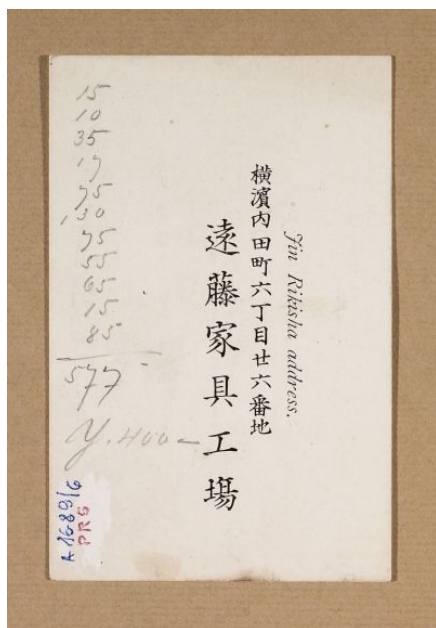 Jin Rikisha address.
横濱內田町六丁目廿六番地
遠藤家具工場
15
10
35
17
75
130
75
55
65
15
85
577
Y. 400 –
A 1689/6
PRS